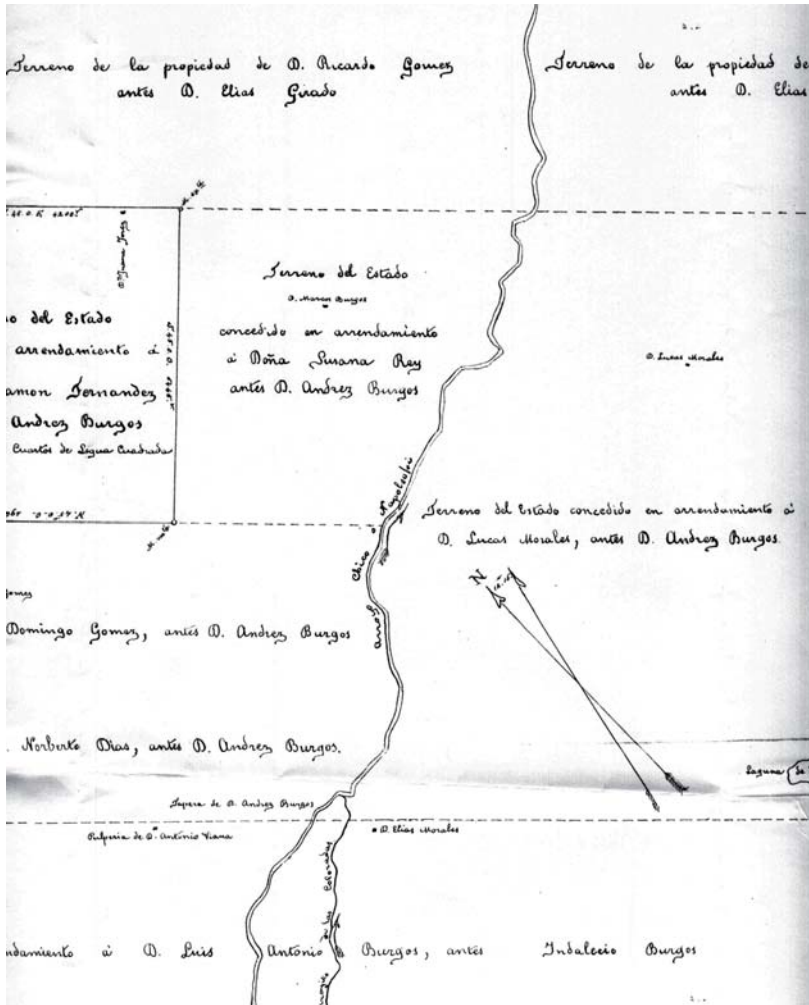 Terreno de la propiedad de D. Ricardo Gomez
antes D. Elias Girado
Terreno de la propiedad de
antes D. Elias
Terreno del Estado
D. Marcos Burgos
concedido en arrendamiento
á Doña Susana Rey
antes D. Andrez Burgos
o del Estado
arrendamiento á
amon Fernandez
Andrez Burgos
Cuartos de Légua Cuadrada
D. Lucas Morales
Arroyo Chico ó Napolcofú
Terreno del Estado concedido en arrendamiento á
D. Lucas Morales, antes D. Andrez Burgos.
N
Domingo Gomez, antes D. Andrez Burgos
. Norberto Dias, antes D. Andrez Burgos.
Laguna de
Tapera de D. Andrez Burgos
Pulperia de D. António Viana
D. Elias Morales
de los Colorados
ndamiento á D. Luis António Burgos, antes Indalecio Burgos